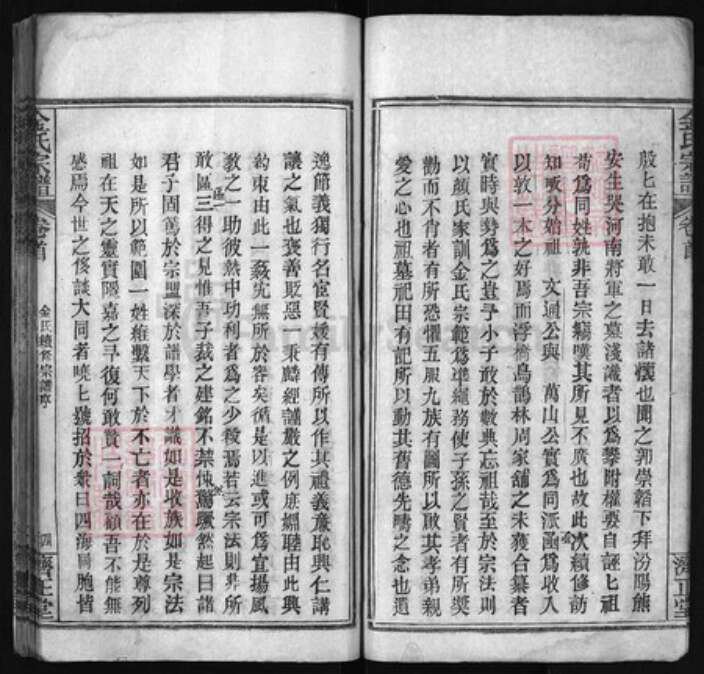 殷殷在抱未敢一日去諸懷也聞之郭崇韜下拜汾陽熊
安生哭河南將軍之墓淺識者以爲攀附權要自誣其祖
苟爲同姓孰非吾宗竊嘆其所見不廣也故此次續修訪
知畈分始祖 文通公與 萬山公實爲同派爲收入
以敦一本之好焉而浮橋烏鵲林周家舖之未獲合纂者
實時與勢爲之豈予小子敢於數典忘祖哉至於宗法則
以顏氏家訓金氏宗範爲準繩務使子孫之賢者有所獎
勸而不肖者有所恐懼五服九族有圖所以敢其孝弟親
愛之心也祖墓祀田有記所以動其舊德先疇之念也遺
逸節義獨行名宦賢媛有傳所以作其禮義廉恥興仁講
讓之氣也褒善貶惡一秉麟經謹嚴之例庶繼睦由此興
約束由此一姦宄無所於容矣循是以進或可爲宣揚風
教之一助彼熱中功利者爲之少稜焉若云宗法則非所
敢區三得之見惟吾子裁之建銘不禁悚驚蹶然起曰諸
君子固篤於宗盟深於譜學者才識如是收族如是宗法
如是所以範圍一姓維繫天下於不亡者亦在於是尊列
祖在天之靈實隱嘉之予復何敢贊一詞哉顧吾不能無
感焉今世之侈談大同者曉曉號招於衆曰四海同胞皆
金氏宗譜 卷首
金氏續修宗譜序
四
濟正堂
金氏宗譜 卷首
濟正堂